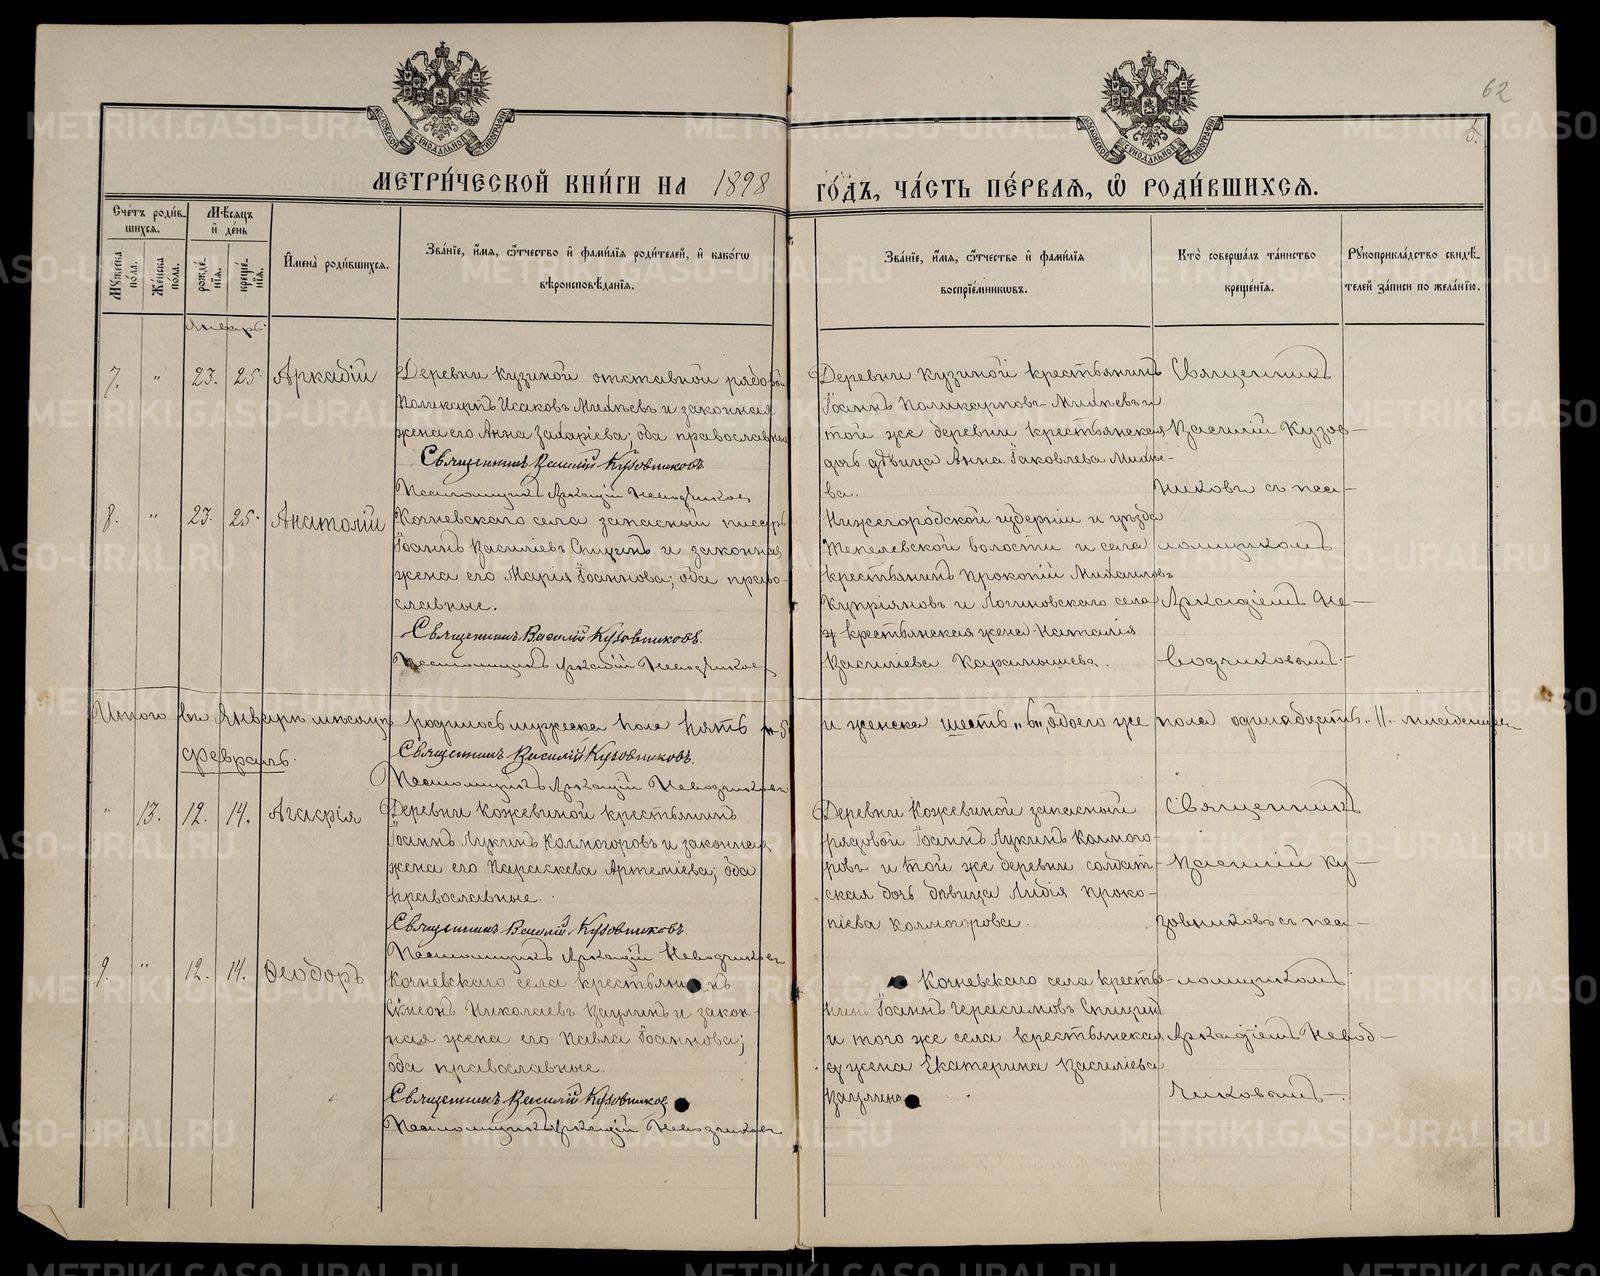 62
5.
МОСКОВСКОЙ СѴНОДАЛЬНОЙ ТИПОГРАФІИ
МОСКОВСКОЙ СѴНОДАЛЬНОЙ ТИПОГРАФІИ
МЕТРИ́ЧЕСКОЙ КНИ́ГИ НА 1898 ГО́ДЪ, ЧА́СТЬ ПЕ́РВАѦ, Ѡ҆ РОДИ́ВШИХСѦ.
Сче́тъ роди́вшихсѧ.
Му́жеска по́ла.
Же́нска по́ла.
Мѣ́сѧцъ и҆ де́нь
рожде́нїѧ.
креще́нїѧ.
И҆мена̀ роди́вшихсѧ.
Зва́нїе, и҆́мѧ, ѻ҆́тчество и҆ фами́лїѧ роди́телей, и҆ како́гѡ
вѣроисповѣ́данїѧ.
Зва́нїе, и҆́мѧ, ѻ҆́тчество и҆ фами́лїѧ
воспрїе́мникѡвъ.
Кто̀ соверша́лъ та́инство
креще́нїѧ.
Рꙋкоприкла́дство свидѣ́-
телей за́писи по жела́нїю.
Январь.
7. " 23. 25. Аркадій
Деревни Кузиной отставной рядовой
Поликарпъ Исаковъ Михѣевъ и законная
жена его Анна Захаріева; оба православные
Священникъ Василій Кузовниковъ
Псаломщикъ Аркадій Неводчиковъ
Деревни Кузиной крестьянинъ
Іоаннъ Поликарповъ Михѣевъ и
той же деревни крестьянская
дочь дѣвица Анна Іаковлева Михѣе-
ва.
Священникъ
Василій Кузов-
никовъ съ пса-
8. " 23. 25. Анатолій
Кочневскаго села запасный писарь
Іоаннъ Василіевъ Спицинъ и законная
жена его Марія Іоаннова; оба право-
славные.
Священникъ Василій Кузовниковъ.
Псаломщикъ Аркадій Неводчиковъ
Нижегородской губерніи и уѣзда
Тепелевской волости и села
крестьянинъ Прокопій Михаиловъ
Купріяновъ и Логиновскаго села
крестьянская жена Наталія
Василіева Карамышева.
ломщикомъ
Аркадіемъ Не-
водчиковымъ.
Итого въ Январѣ мѣсяцѣ родилось мужеска пола пять "5" и женска шесть "6", обоего же пола одинадцать "11" младенцевъ
Священникъ Василій Кузовниковъ.
Псаломщикъ Аркадій Неводчиковъ
Февраль.
" 13. 12. 14. Агаѳія
Деревни Кожевиной крестьянинъ
Іоаннъ Лукинъ Колмогоровъ и законная
жена его Параскева Артеміева; оба
православные.
Священникъ Василій Кузовниковъ.
Псаломщикъ Аркадій Неводчиковъ
Деревни Кожевиной запасный
рядовой Іоаннъ Лукинъ Колмого-
ровъ и той же деревни солдат-
ская дочь дѣвица Лидія Проко-
піева Колмогорова.
Священникъ
Василій Ку-
зовниковъ съ пса-
9. " 12. 14. Ѳеодоръ
Кочневскаго села крестьянинъ
Сѵмеонъ Николаевъ Ваулинъ и закон-
ная жена его Павла Іоаннова;
оба православные.
Священникъ Василій Кузовниковъ
Псаломщикъ Аркадій Неводчиковъ
Кочневскаго села кресть-
нинъ Іоаннъ Герасимовъ Спицинъ
и того же села крестьянская
жена Екатерина Василіева
Ваулина
ломщикомъ
Аркадіемъ Невод-
чиковымъ.
METRIKI.GASO-URAL.RU